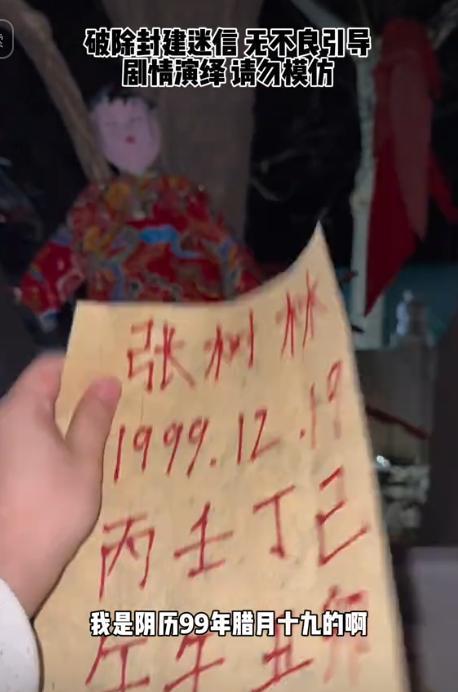 破除封建迷信 无不良引导
剧情演绎 请勿模仿
张树林
1999.12.19
丙壬丁己
我是阴历99年腊月十九的啊
午午丑卯